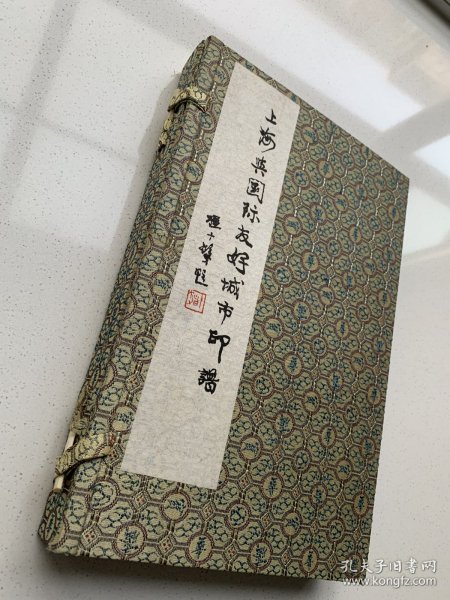 上海与国际友好城市印谱
程十发题
孔夫子旧书网
www.kongfz.com